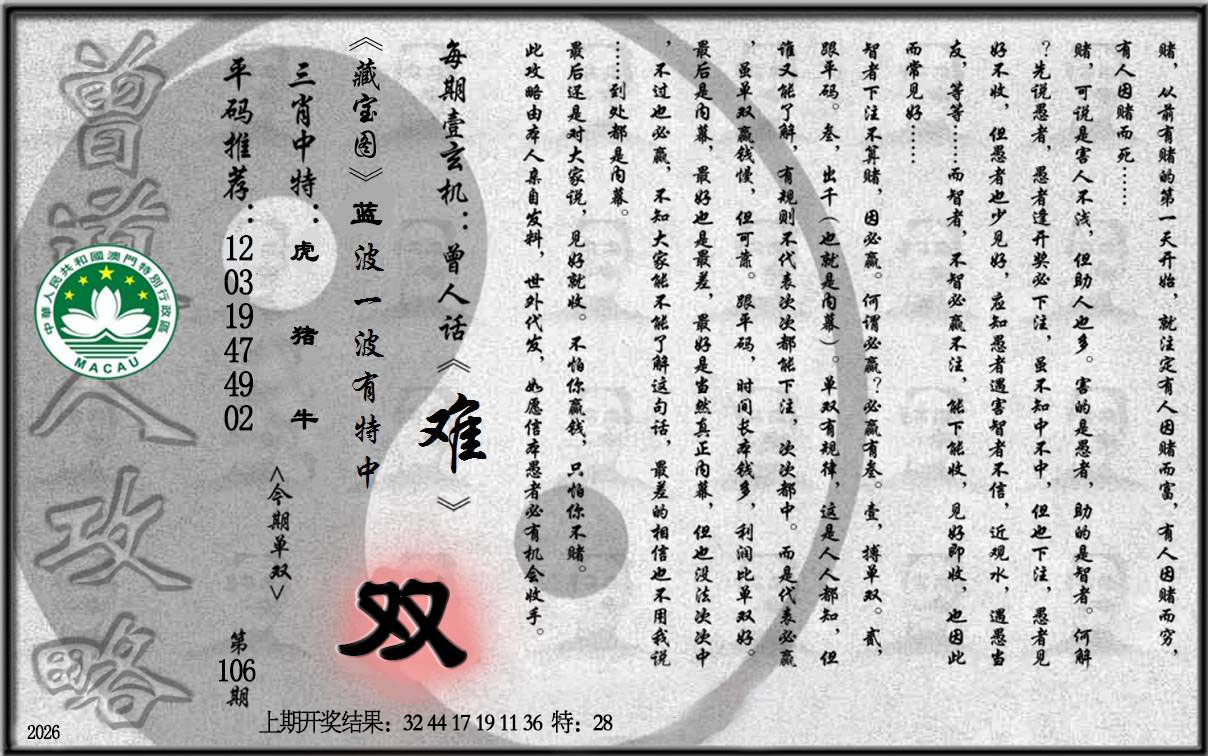 赌，从前有赌的第一天开始，就注定有人因赌而富，有人因赌而穷，
有人因赌而死……
赌，可说是害人不浅，但助人也多。害的是愚者，助的是智者。何解
？先说愚者，愚者逢开奖必下注，虽不知中不中，但也下注，愚者见
好不收，但愚者也少见好，应知愚者遇害智者不信，近观水，遇愚当
友，等等……而智者，不智必赢不注，能下能收，见好即收，也因此
而常见好……
智者下注不算赌，因必赢。何谓必赢？必赢有叁。壹，搏单双。贰，
跟平码。叁，出千（也就是内幕）。单双有规律，这是人人都知，但
谁又能了解，有规则不代表次次都能下注，次次都中。而是代表必赢
，虽单双赢钱慢，但可靠。跟平码，时间长本钱多，利润比单双好。
最后是内幕，最好也是最差，最好是当然真正内幕，但也没法次次中
，不过也必赢，不知大家能不能了解这句话，最差的相信也不用我说
……到处都是内幕。
最后还是对大家说，见好就收。不怕你赢钱，只怕你不赌。
此攻略由本人亲自发料，世外代发，如愿信本愚者必有机会收手。
每期壹玄机：曾人话《难》
《藏宝图》蓝波一波有特中
双
三肖中特：虎 猪 牛
<今期单双>
平码推荐：12 03 19 47 49 02
第106期
曾道人攻略
中華人民共和國澳門特別行政區
MACAU
上期开奖结果：32 44 17 19 11 36 特：28
2026